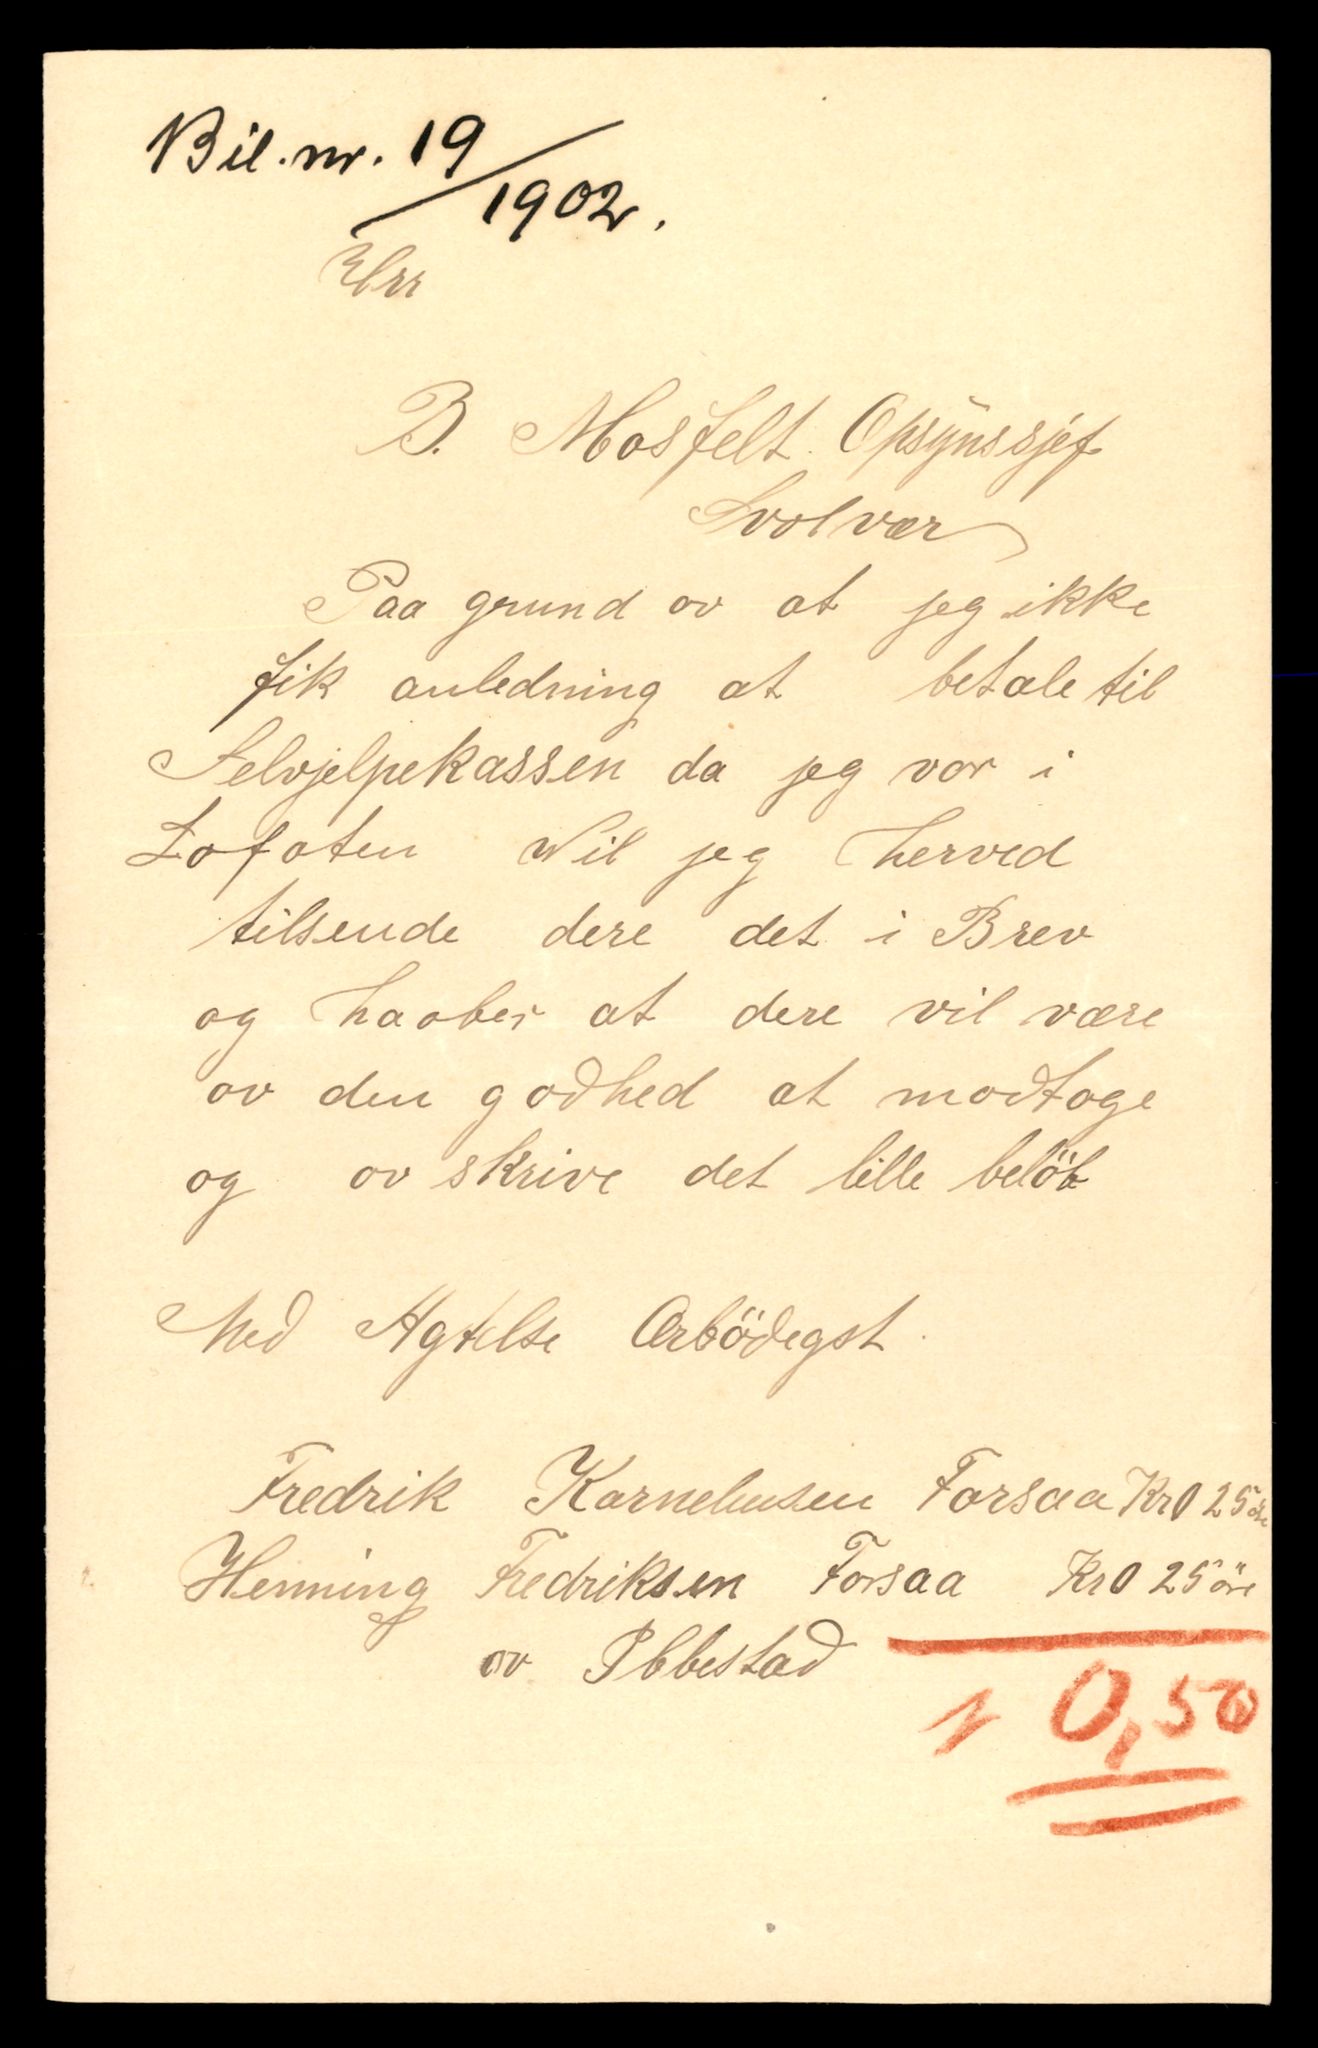 Bil. nr. 19/1902.
Hrr
B. Mosfelt Opsÿnssjef
Svolvær
Paa grund ov at jeg ikke
fik anledning at betale til
Selvjelpekassen da jeg var i
Lofoten Vil jeg herved
tilsende dere det i Brev
og haaber at dere vil være
ov den godhed at modtage
og ov skrive det lille belöb
Med Agtelse Ærbödegst.
Fredrik Karneliusen Forsaa Kr 0 25 öre
Henning Fredriksen Forsaa Kr 0 25 öre
ov Ibbestad
0,50